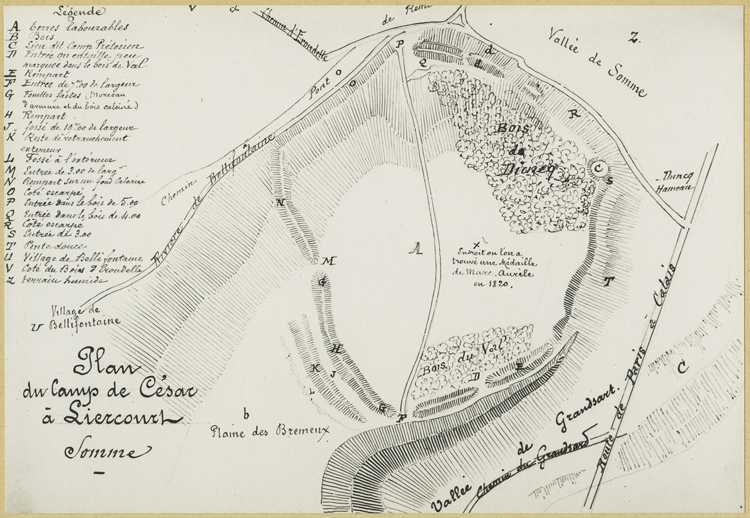 Légende
A terres labourables
B Bois
C Lieu dit Camp Prétorien
D Entrée ou entaille peu
marquée dans le bois de Val
E Rempart
F Entrée de 7m00 de largeur
G Fouilles faites (Morceau
d'armure et du bois calciné)
H Rempart
J fossé de 10m00 de largeur
K Reste de retranchement
extérieur
L Fossé à l'extérieur
M Entrée de 3.00 de larg.
N Rempart sur un fond Calcaire
O Coté escarpé
P Entrée dans le bois de 5.00
Q Entrée dans le bois de 4.00
R Côte escarpée
S Entrée de 3.00
T Pente douce
U Village de Bellifontaine
V Coté du Bois d'Erondelle
Z terrain humide
V
Chemin d'Erondelle
de
Z.
Vallée de Somme
Pont
O
O
P
Q
d
R
Bois
de
Diencq
C
S
Duncq
Hameau
Chemin
Rivière de Bellifontaine
N
M
G
A
x
Endroit ou l'on a
trouvé une Médaille
de Marc-Aurèle
en 1820.
T
Village de
U Bellifontaine
H
K
J
L
G
F
Bois du Val
D
E
C
Plan
du Camp de César
à Liercourt
Somme
b
Plaine des Bremeux
Vallée de Grandsart
Chemin du Grandsard
Route de Paris à Calais